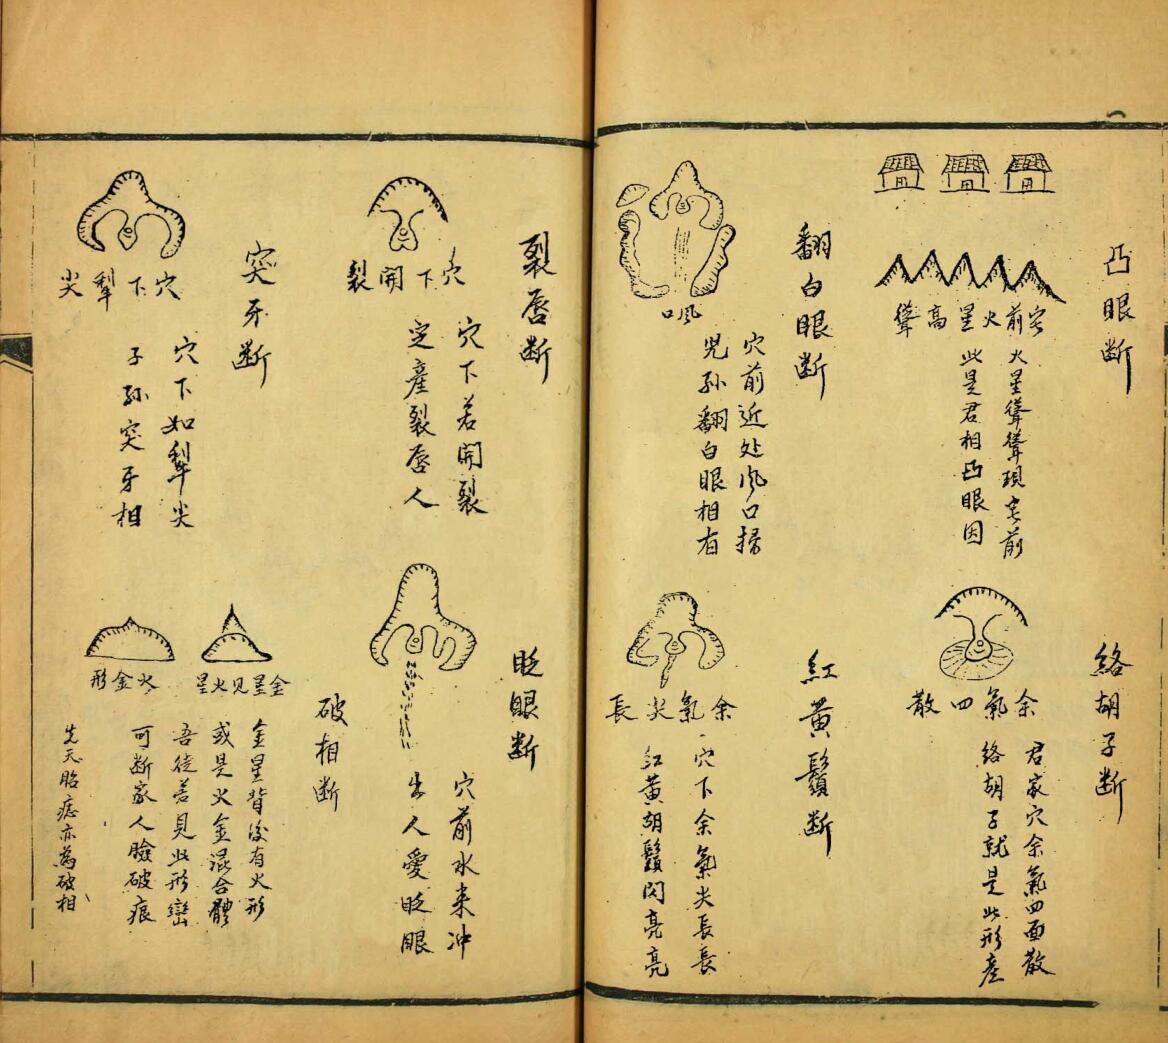 凸眼断
宅前火星高聳
火星聳聳現宅前
此是君相凸眼因
絡胡子断
余氣四散
君家穴余氣四面散
絡胡子就是此形産
翻白眼断
風口
穴前近处風口掃
兒孫翻白眼相有
紅黄鬚断
余氣尖長
穴下余氣尖長長
紅黄胡鬚閃亮亮
裂唇断
穴下開裂
穴下若開裂
定產裂唇人
眨眼断
穴前水来冲
出人愛眨眼
突牙断
穴下犁尖
穴下如犁尖
子孫突牙相
破相断
金星見火星
火金形
金星背後有火形
或是火金混合體
吾徒若見此形巒
可断家人臉破痕
先天胎痣亦為破相